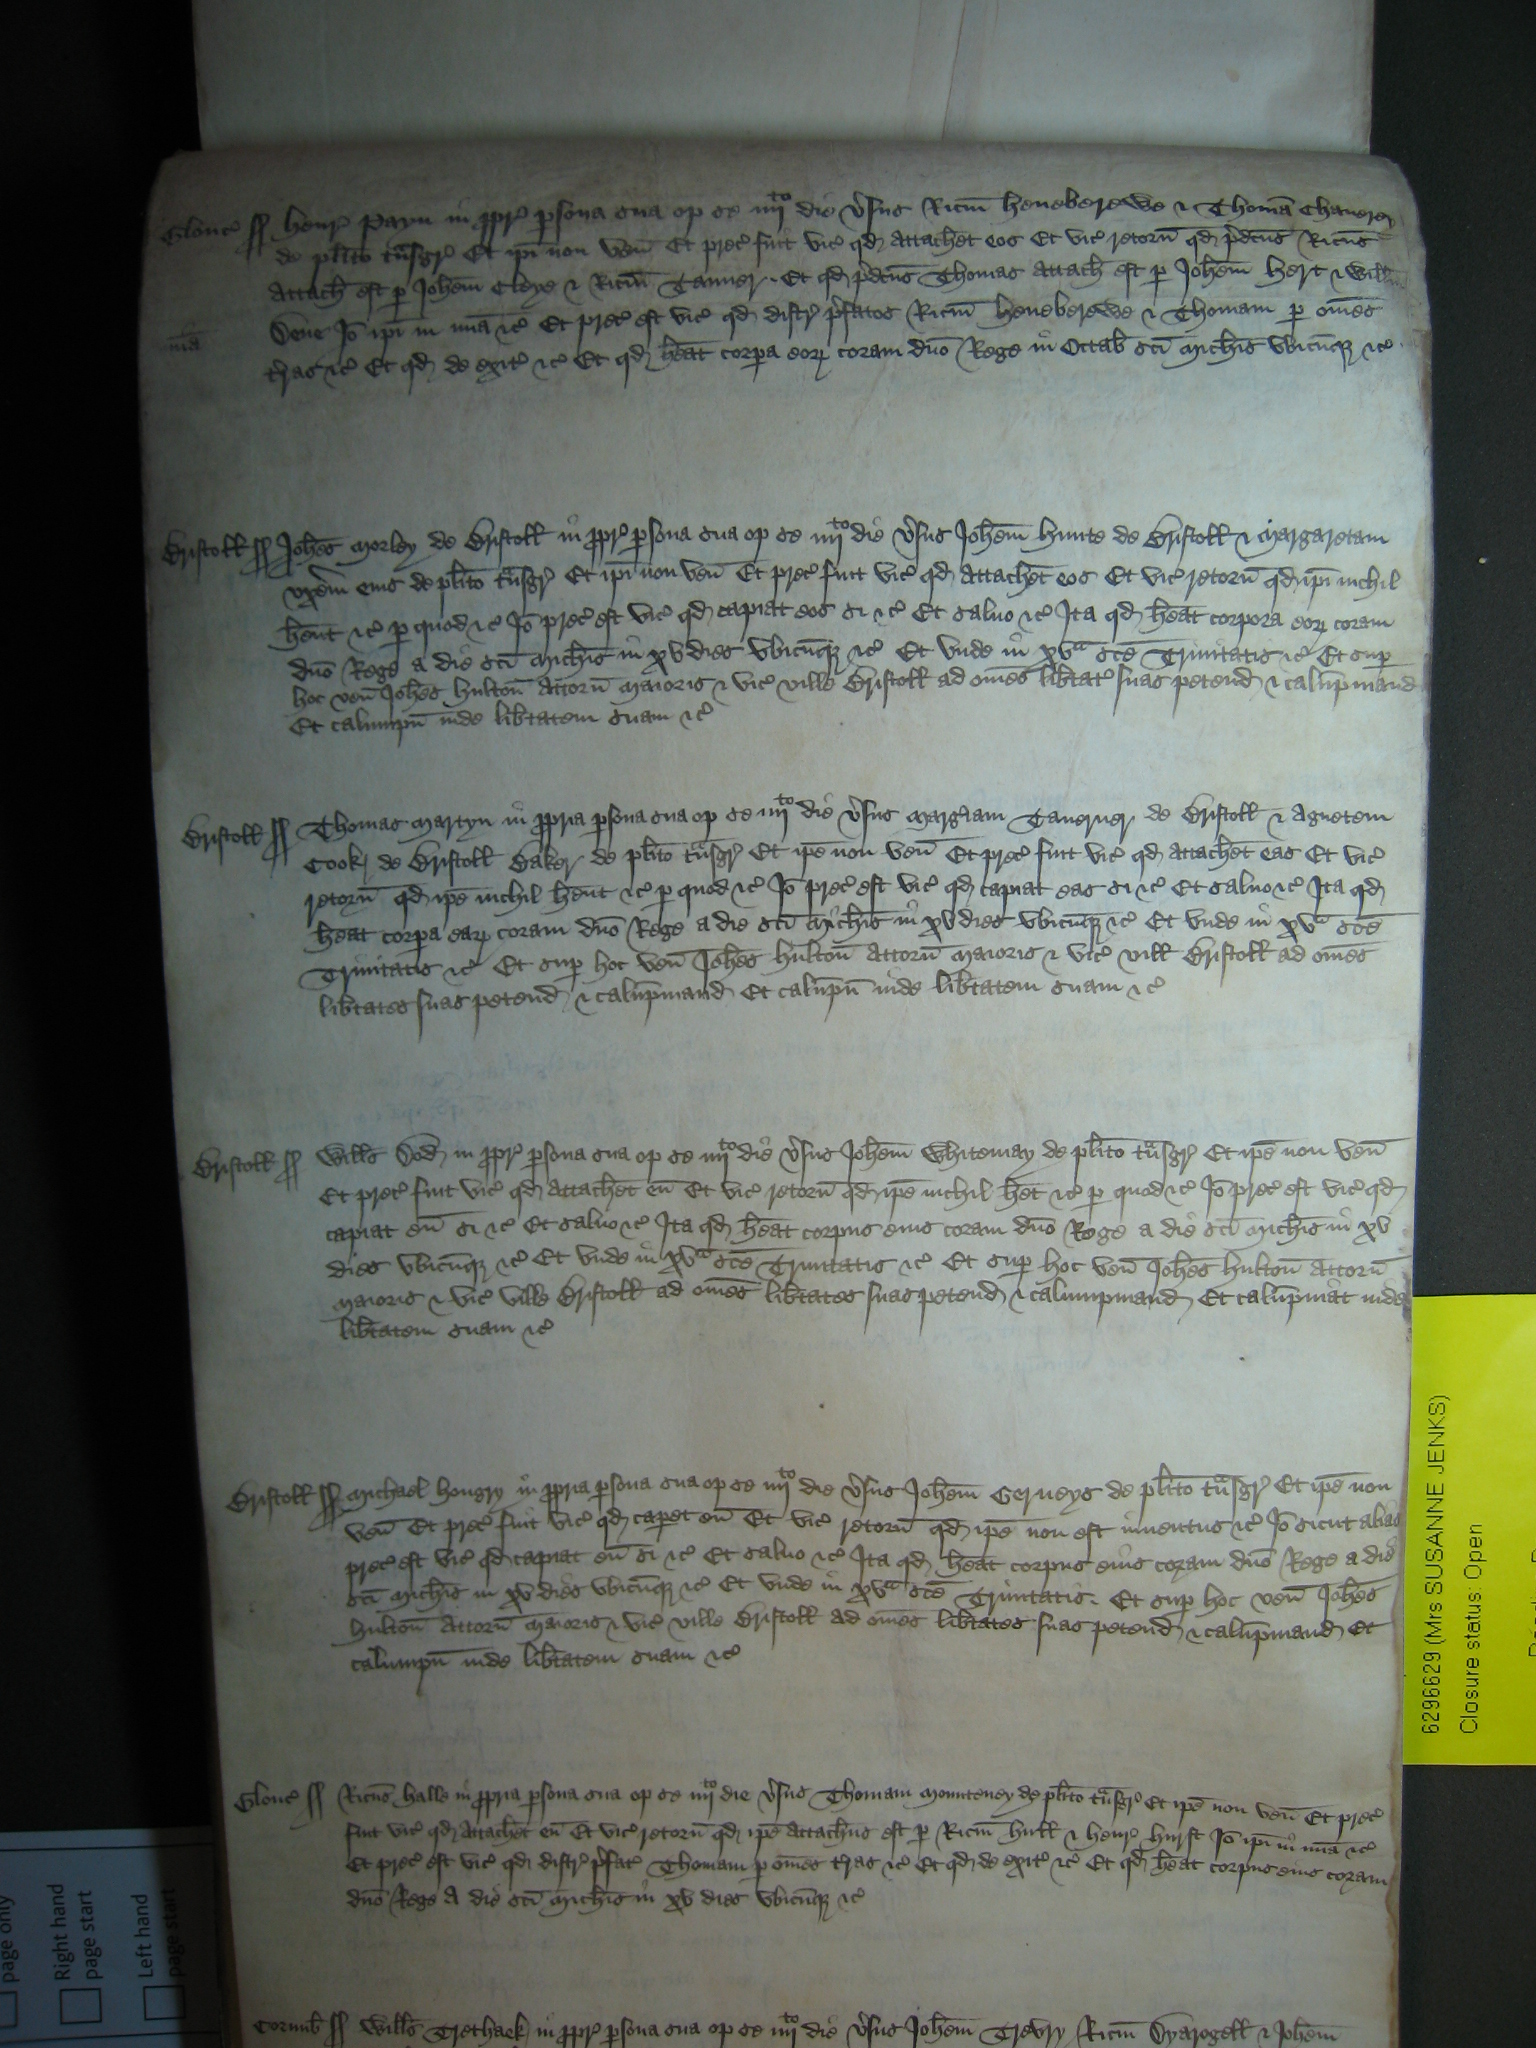 Glouc ss Henr Payn in ppr psona sua op se iiijto die vsus Ricm Heneberewe & Thomā Chaverey
de plito tnsgr Et ipi non ven Et prec fuit vic qd attachet eos Et vic retorn qd pdcus Ricus
attach est p Johem Cleye & Ricm Tanner Et qd pdcus Thomas attach est p Johem Hert & Willm
Io ipi in mia &c Et prec est vic qd distr pfatos Ricm Heneberewe & Thomam p omes
mia
tras &c Et qd de exit &c Et qd heat corpa eor coram dno Rege in Octab sci Michis vbicuq &c
Bristoll ss Johes Morley de Bristoll in ppr psona sua op se iiijto die vsus Johem Hunte de Bristoll & Margaretam
vxem eius de plito tnsgr Et ipi non ven Et prec fuit vic qd attachet eos Et vic retorn qd ipi nichil
hent &c p quod &c Io prec est vic qd capiat eos si &c Et saluo &c Ita qd heat corpora eor coram
dno Rege a die sci Michis in xv dies vbicuq &c Et vnde in xva sce Trinitatis &c Et sup
hoc ven Johes Hulton attorn maioris & vic ville Bristoll ad omes libtat suas petend & calupmand
Et calumpn inde libtatem suam &c
Bristoll ss Thomas Martyn in ppria psona sua op se iiijto die vsus Margiam Tauerner de Bristoll & Agnetem
Cook de Bristoll Baker de plito tnsgr Et ipe non ven Et prec fuit vic qd attachet eas Et vic
retorn qd ipe nichil hent &c p quod &c Io prec est vic qd capiat eas si &c Et saluo &c Ita qd
heat corpa ear coram dno Rege a die sci Michis in xv dies vbicuq &c Et vnde in xva sce
Trinitatis &c Et sup hoc ven Johes Hulton attorn maioris & vic vill Bristoll ad omes
libtates suas petend & calupmand Et calupn inde libtatem suam &c
Bristoll ss Wills in ppr psona sua op se iiijto die vsus Johem Whitemay de plito tnsgr Et ipe non ven
Et prec fuit vic qd attachet eu Et vic retorn qd ipe nichil het &c p quod &c Io prec est vic qd
capiat eu si &c Et saluo &c Ita qd heat corpus eius coram dno Rege a die sci Michis in xv
dies vbicuq &c Et vnde in xva sce Trinitatis &c Et sup hoc ven Johes Hulton attorn
maioris & vic ville Bristoll ad omes libtates suas petend & calumpmand Et calupniat inde
libtatem suam &c
Bristoll ss Michael Hongry in ppria psona sua op se iiijto die vsus Johem Gerneys de plito tnsgr Et ipe non
ven Et prec fuit vic qd capet eu Et vic retorn qd ipe non est inuentus &c Io sicut alias
prec est vic qd capiat eu si &c Et saluo &c Ita qd heat corpus eius coram dno Rege a die
sci Michis in xv dies vbicuq &c Et vnde in xva sce Trinitatis Et sup hoc ven Johes
Hulton attorn maioris & vic ville Bristoll ad omes libtates suas petend & calupmand Et
calumpn inde libtatem suam &c
Glouc ss Ricus Halle in ppria psona sua op se iiijto die vsus Thomam Mounteney de plito tnsgr Et ipe non ven Et prec
fuit vic qd attachet eu Et vic retorn qd ipe attachus est p Ricm Hull & Henr Hurst Io ipi in mia &c
Et prec est vic qd distr pfat Thomam p omes tras &c Et qd de exit &c Et qd heat corpus eius coram
dno Rege a die sci Michis in xv dies vbicuq &c
Cornub ss Wills Trethaek in ppr psona sua op se iiijto die vsus Johem Trevry Ricm & Johem
6296629 (Mrs SUSANNE JENKS)
Closure status: Open
page only
Right hand
page start
Left hand
page start